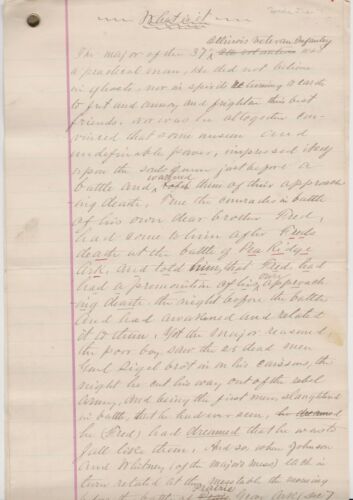 What is it
Illinois Veteran Infantry
The Major of the 37th was
a practical man, he did not believe
in ghosts, nor in spirits returning to earth
to fret and annoy and frighten their best
friends. Nor was he altogether con-
vinced that some unseen and
undefinable power, impressed itself
upon the souls of men just before a
battle and, warned them of their approach
ing death. True the comrades in battle
of his own dear brother Fred,
had come to him after Freds
death at the battle of Pea Ridge
Ark. and told him, that Fred, had
had a premonition of his own approach-
ing death, the night before the battle
and had awakened and related
it to them. Yet the Major reasoned,
the poor boy saw the 25 dead men
Genl Sigel brot in on his caissons, the
night he cut his way out of the rebel
army, and being the first men, slaughtered
in battle, that he had ever seen,
he (Fred) had dreamed that he was to
fall like them. And so, when Johnson
and Whitney (of the Majors Mess) each in
turn related at the mess table the morning
before the battle of Prairie Grove Ark (Dec 7